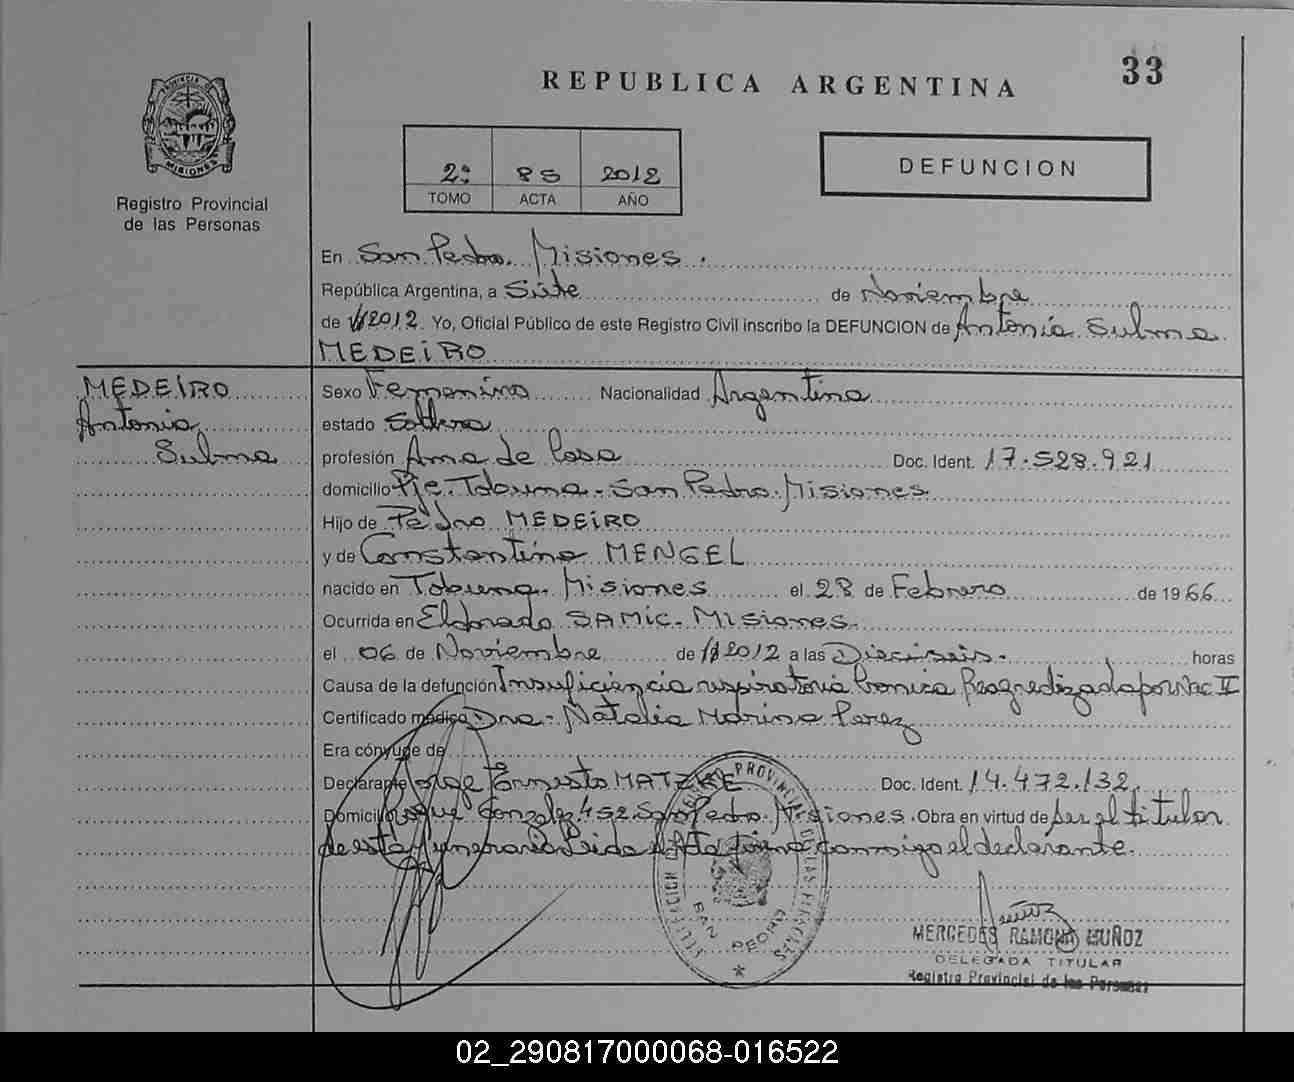 33
REPUBLICA ARGENTINA
PROVINCIA DE
MISIONES
Registro Provincial
de las Personas
2º 85 2012
TOMO ACTA AÑO
DEFUNCION
En San Pedro. Misiones.
República Argentina, a Siete de Noviembre
de 2012. Yo, Oficial Público de este Registro Civil inscribo la DEFUNCION de Antonia Sulma
MEDEIRO
MEDEIRO
Antonia
Sulma
Sexo Femenino Nacionalidad Argentina
estado Soltera
profesión Ama de Casa Doc. Ident. 17.528.921
domicilio Pje. Tobuna - San Pedro. Misiones
Hijo de Pedro MEDEIRO
y de Constantina MENGEL
nacido en Tobuna. Misiones el 28 de Febrero de 1966
Ocurrida en Eldorado SAMIC. Misiones.
el 06 de Noviembre de 2012 a las Dieciseis. horas
Causa de la defunción Insuficiencia respiratoria Cronica Reagudizada por
Certificado médico Dra. Natalia Marina Perez
Era cónyuge de
Declarante Jorge Ernesto MATZKE Doc. Ident. 14.472.132
Domicilio Roque Gonzalez 452. San Pedro. Misiones. Obra en virtud de ser el titular
de esta funeraria Leida el Acta firma conmigo el declarante.
SAN PEDRO
MERCEDES RAMONA MUÑOZ
DELEGADA TITULAR
Registro Provincial de las Personas
02_290817000068-016522